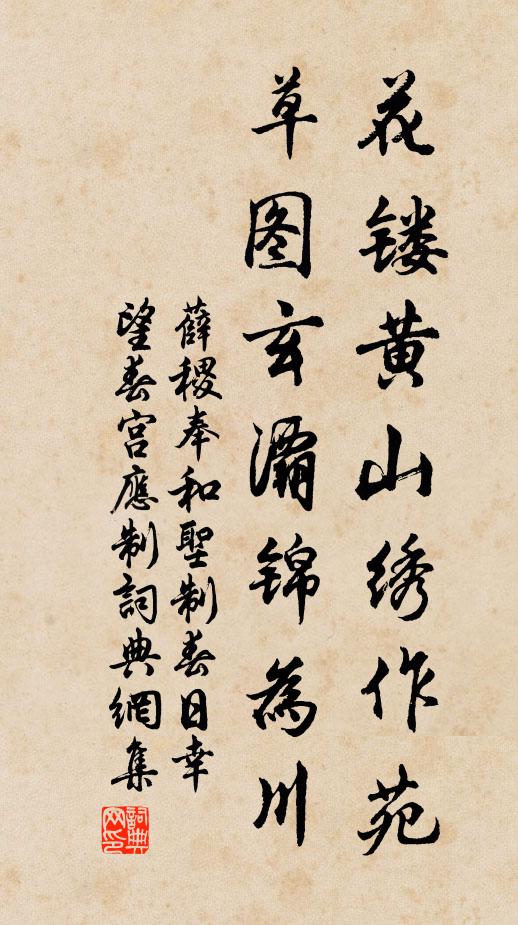 花镂黄山绣作苑
草图玄灞锦為川
薛稷奉和聖制春日幸
望春宫應制詞典網集
詞典网印